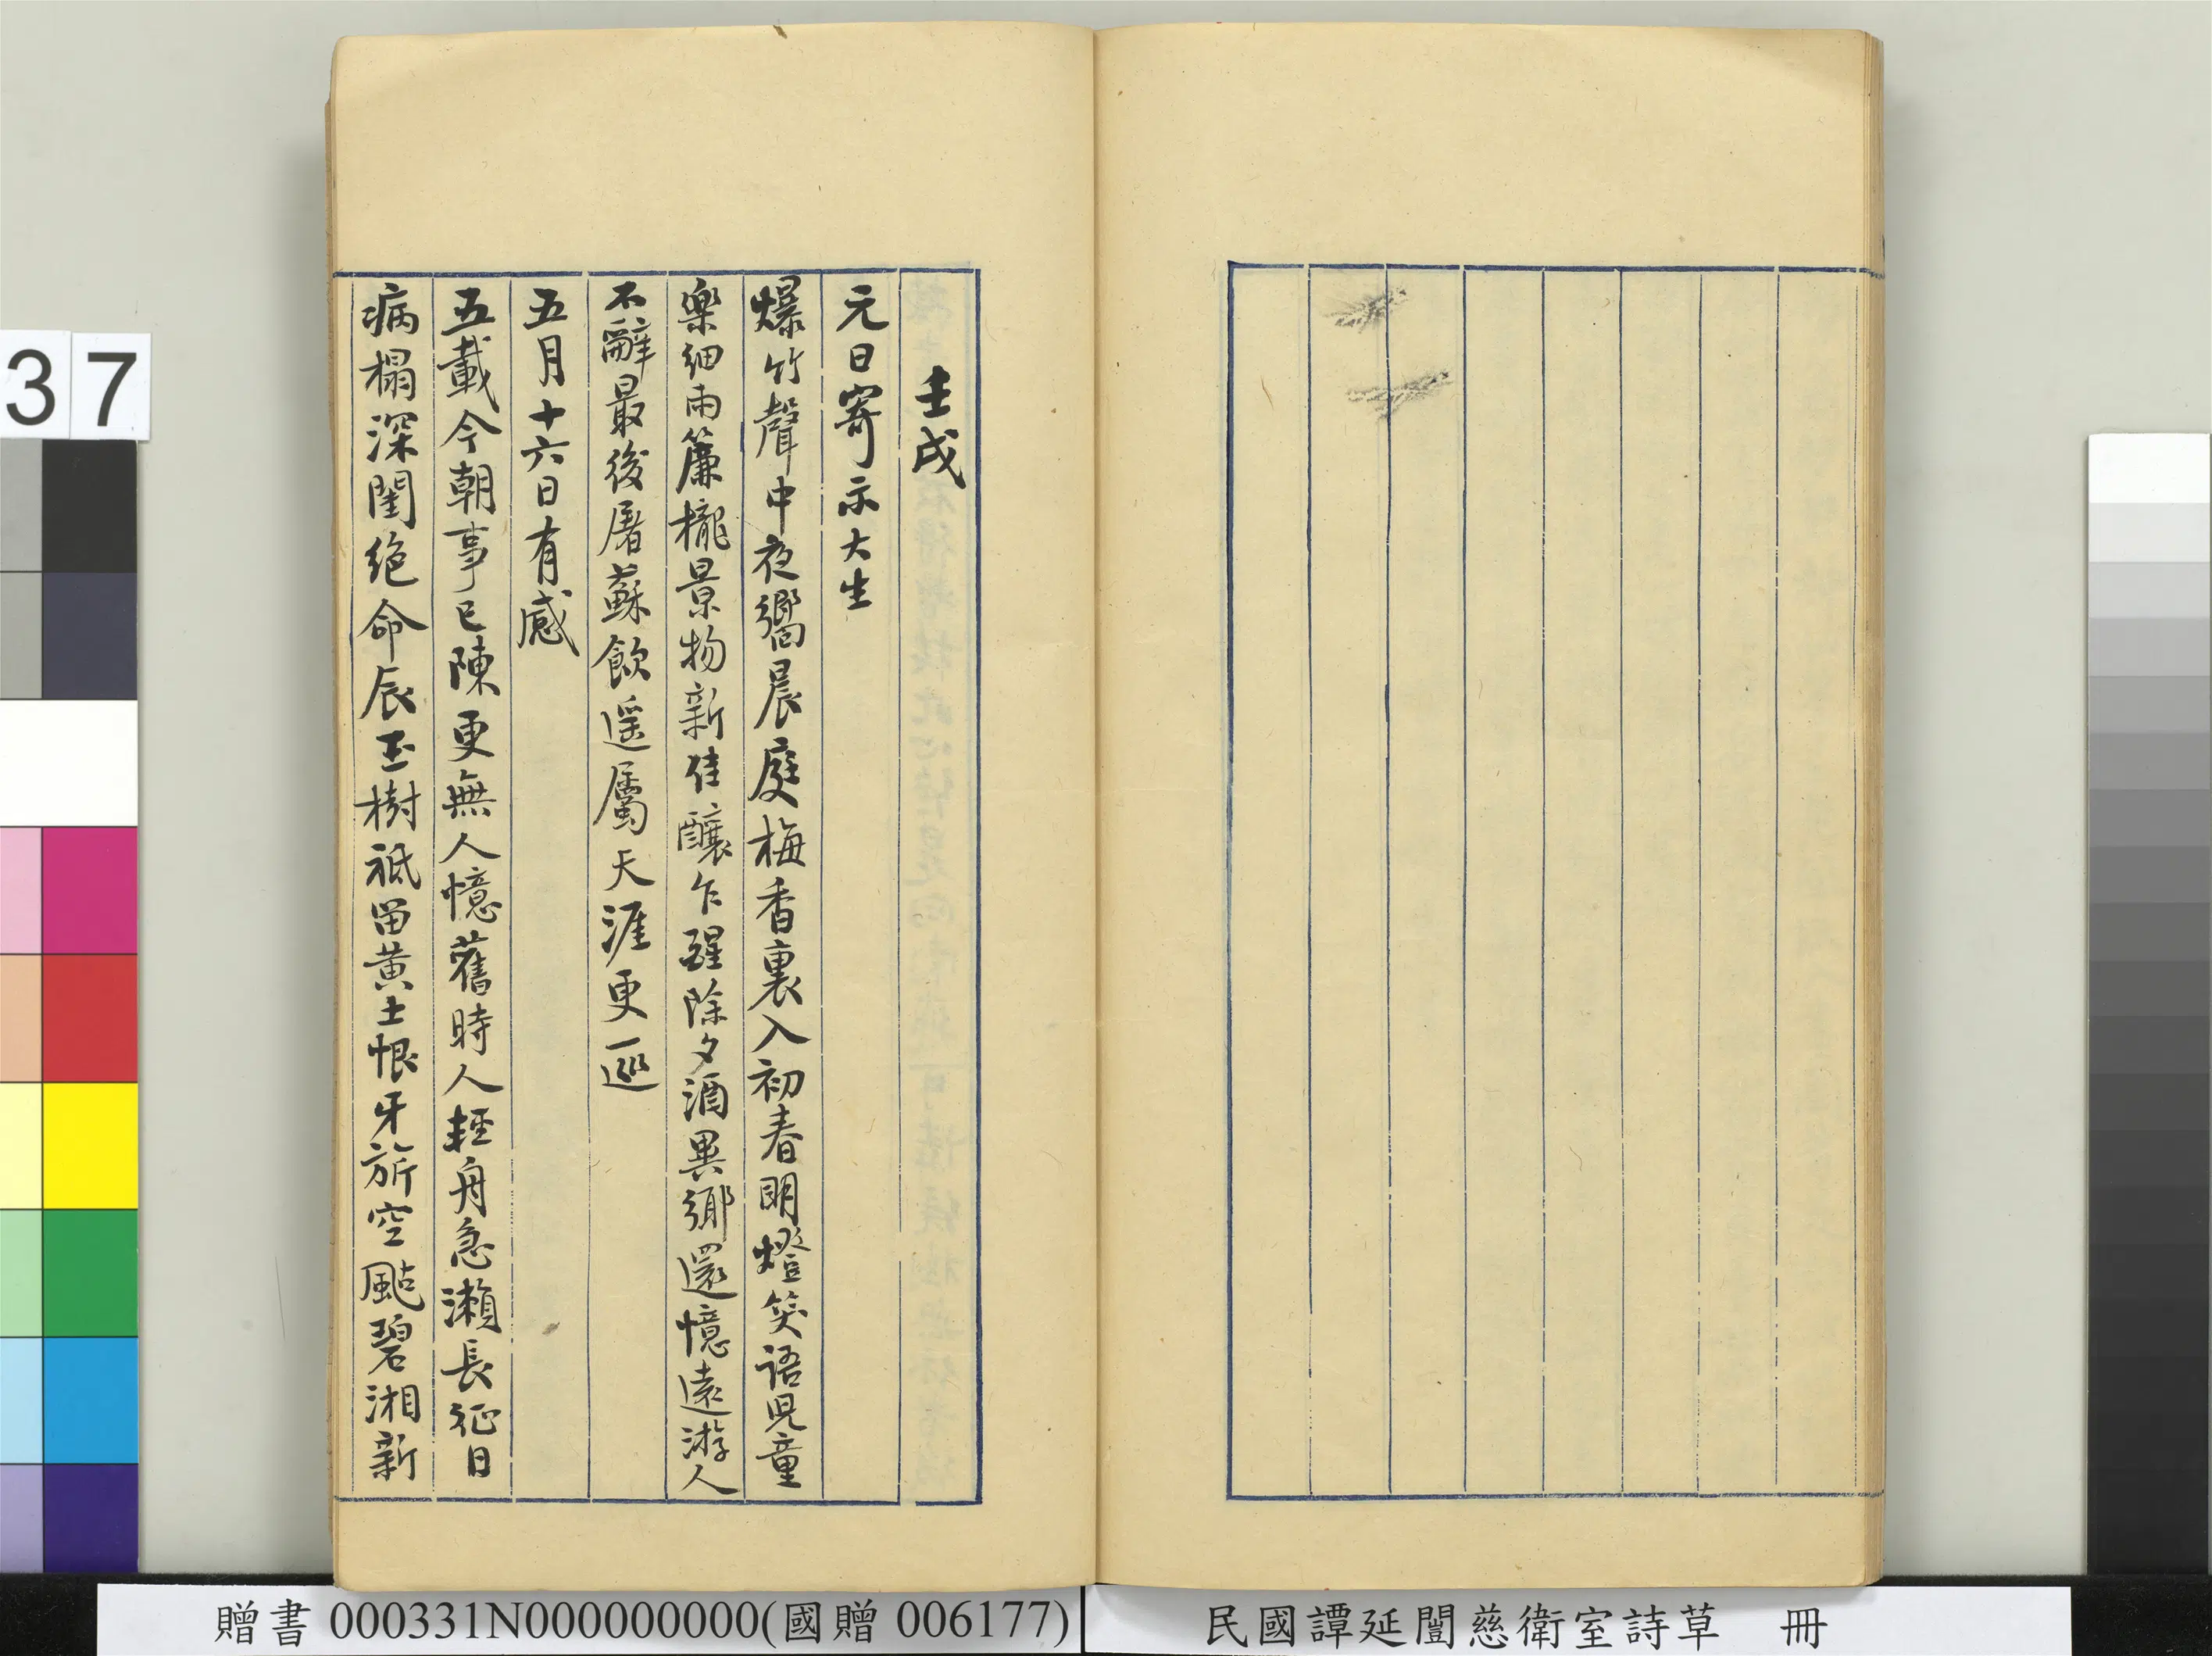 壬戌
元日寄示大生
爆竹聲中夜嚮晨庭梅香裏入初春明燈笑語兒童
樂細雨簾櫳景物新佳釀乍醒除夕酒異鄉還憶遠游人
不辭最後屠蘇飲遥屬天涯更一巡
五月十六日有感
五載今朝事已陳更無人憶舊時人輕舟急瀨長征日
病榻深閨絕命辰玉樹祇留黃土恨牙旂空颭碧湘新
37
贈書 000331N000000000(國贈 006177)
民國譚延闓慈衛室詩草 冊